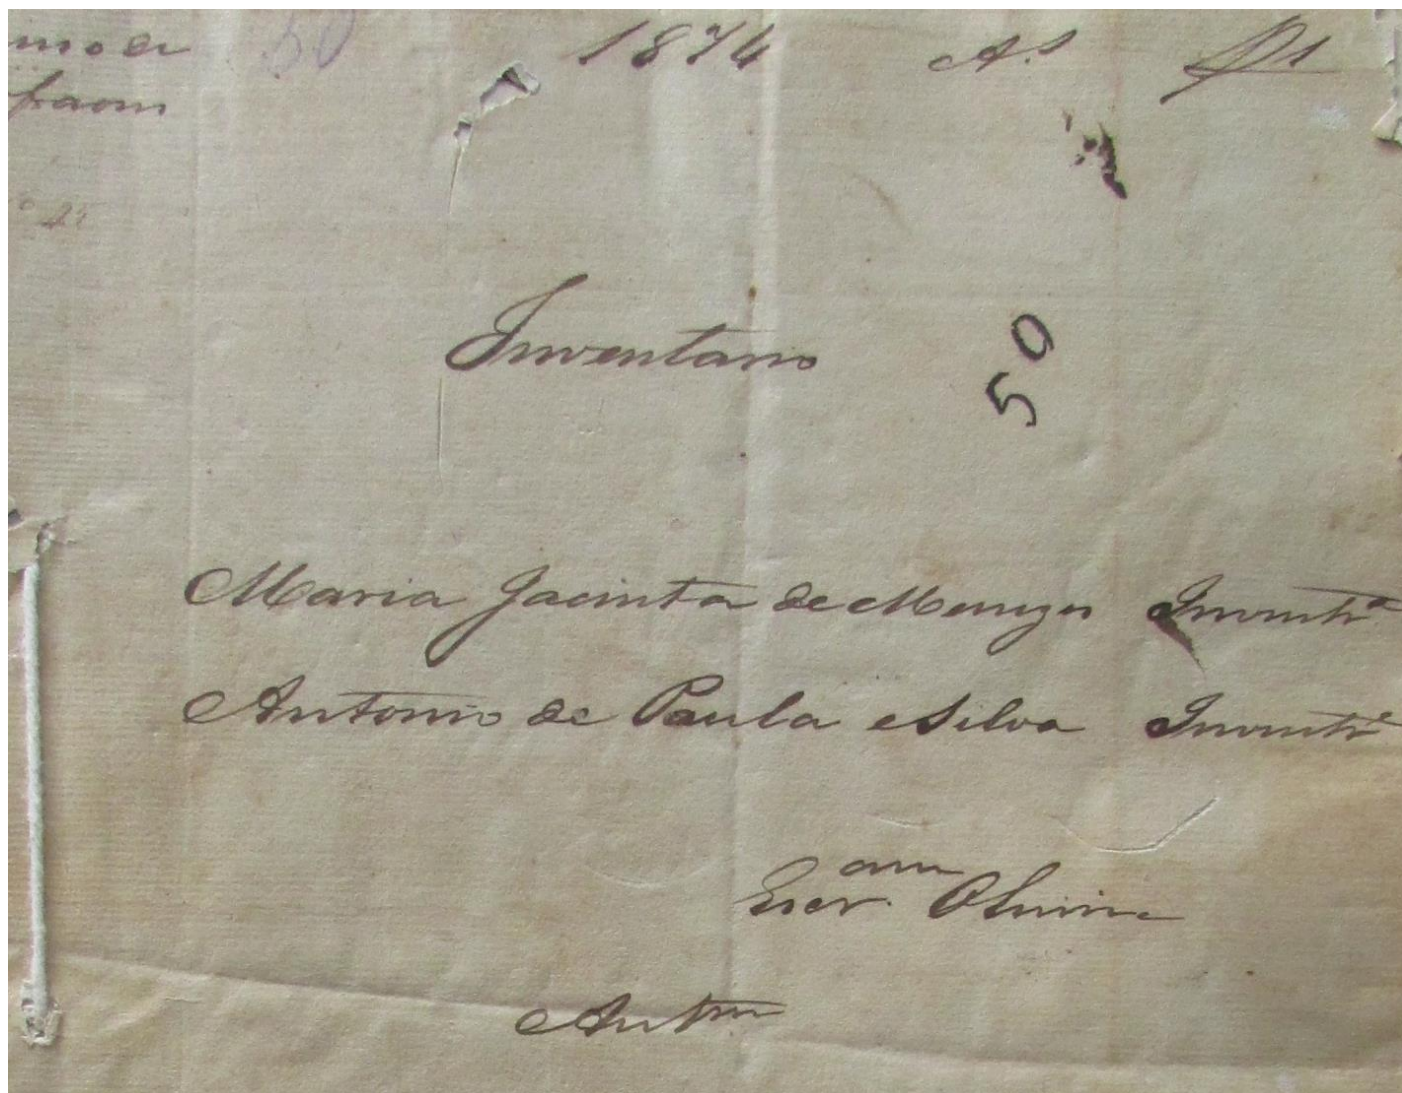 50 1874 
Inventario
50
Maria Jacinta de Menezes Invent.ª
Antonio de Paula e Silva Invent.e
Escr.am Oliveira
Aut.am